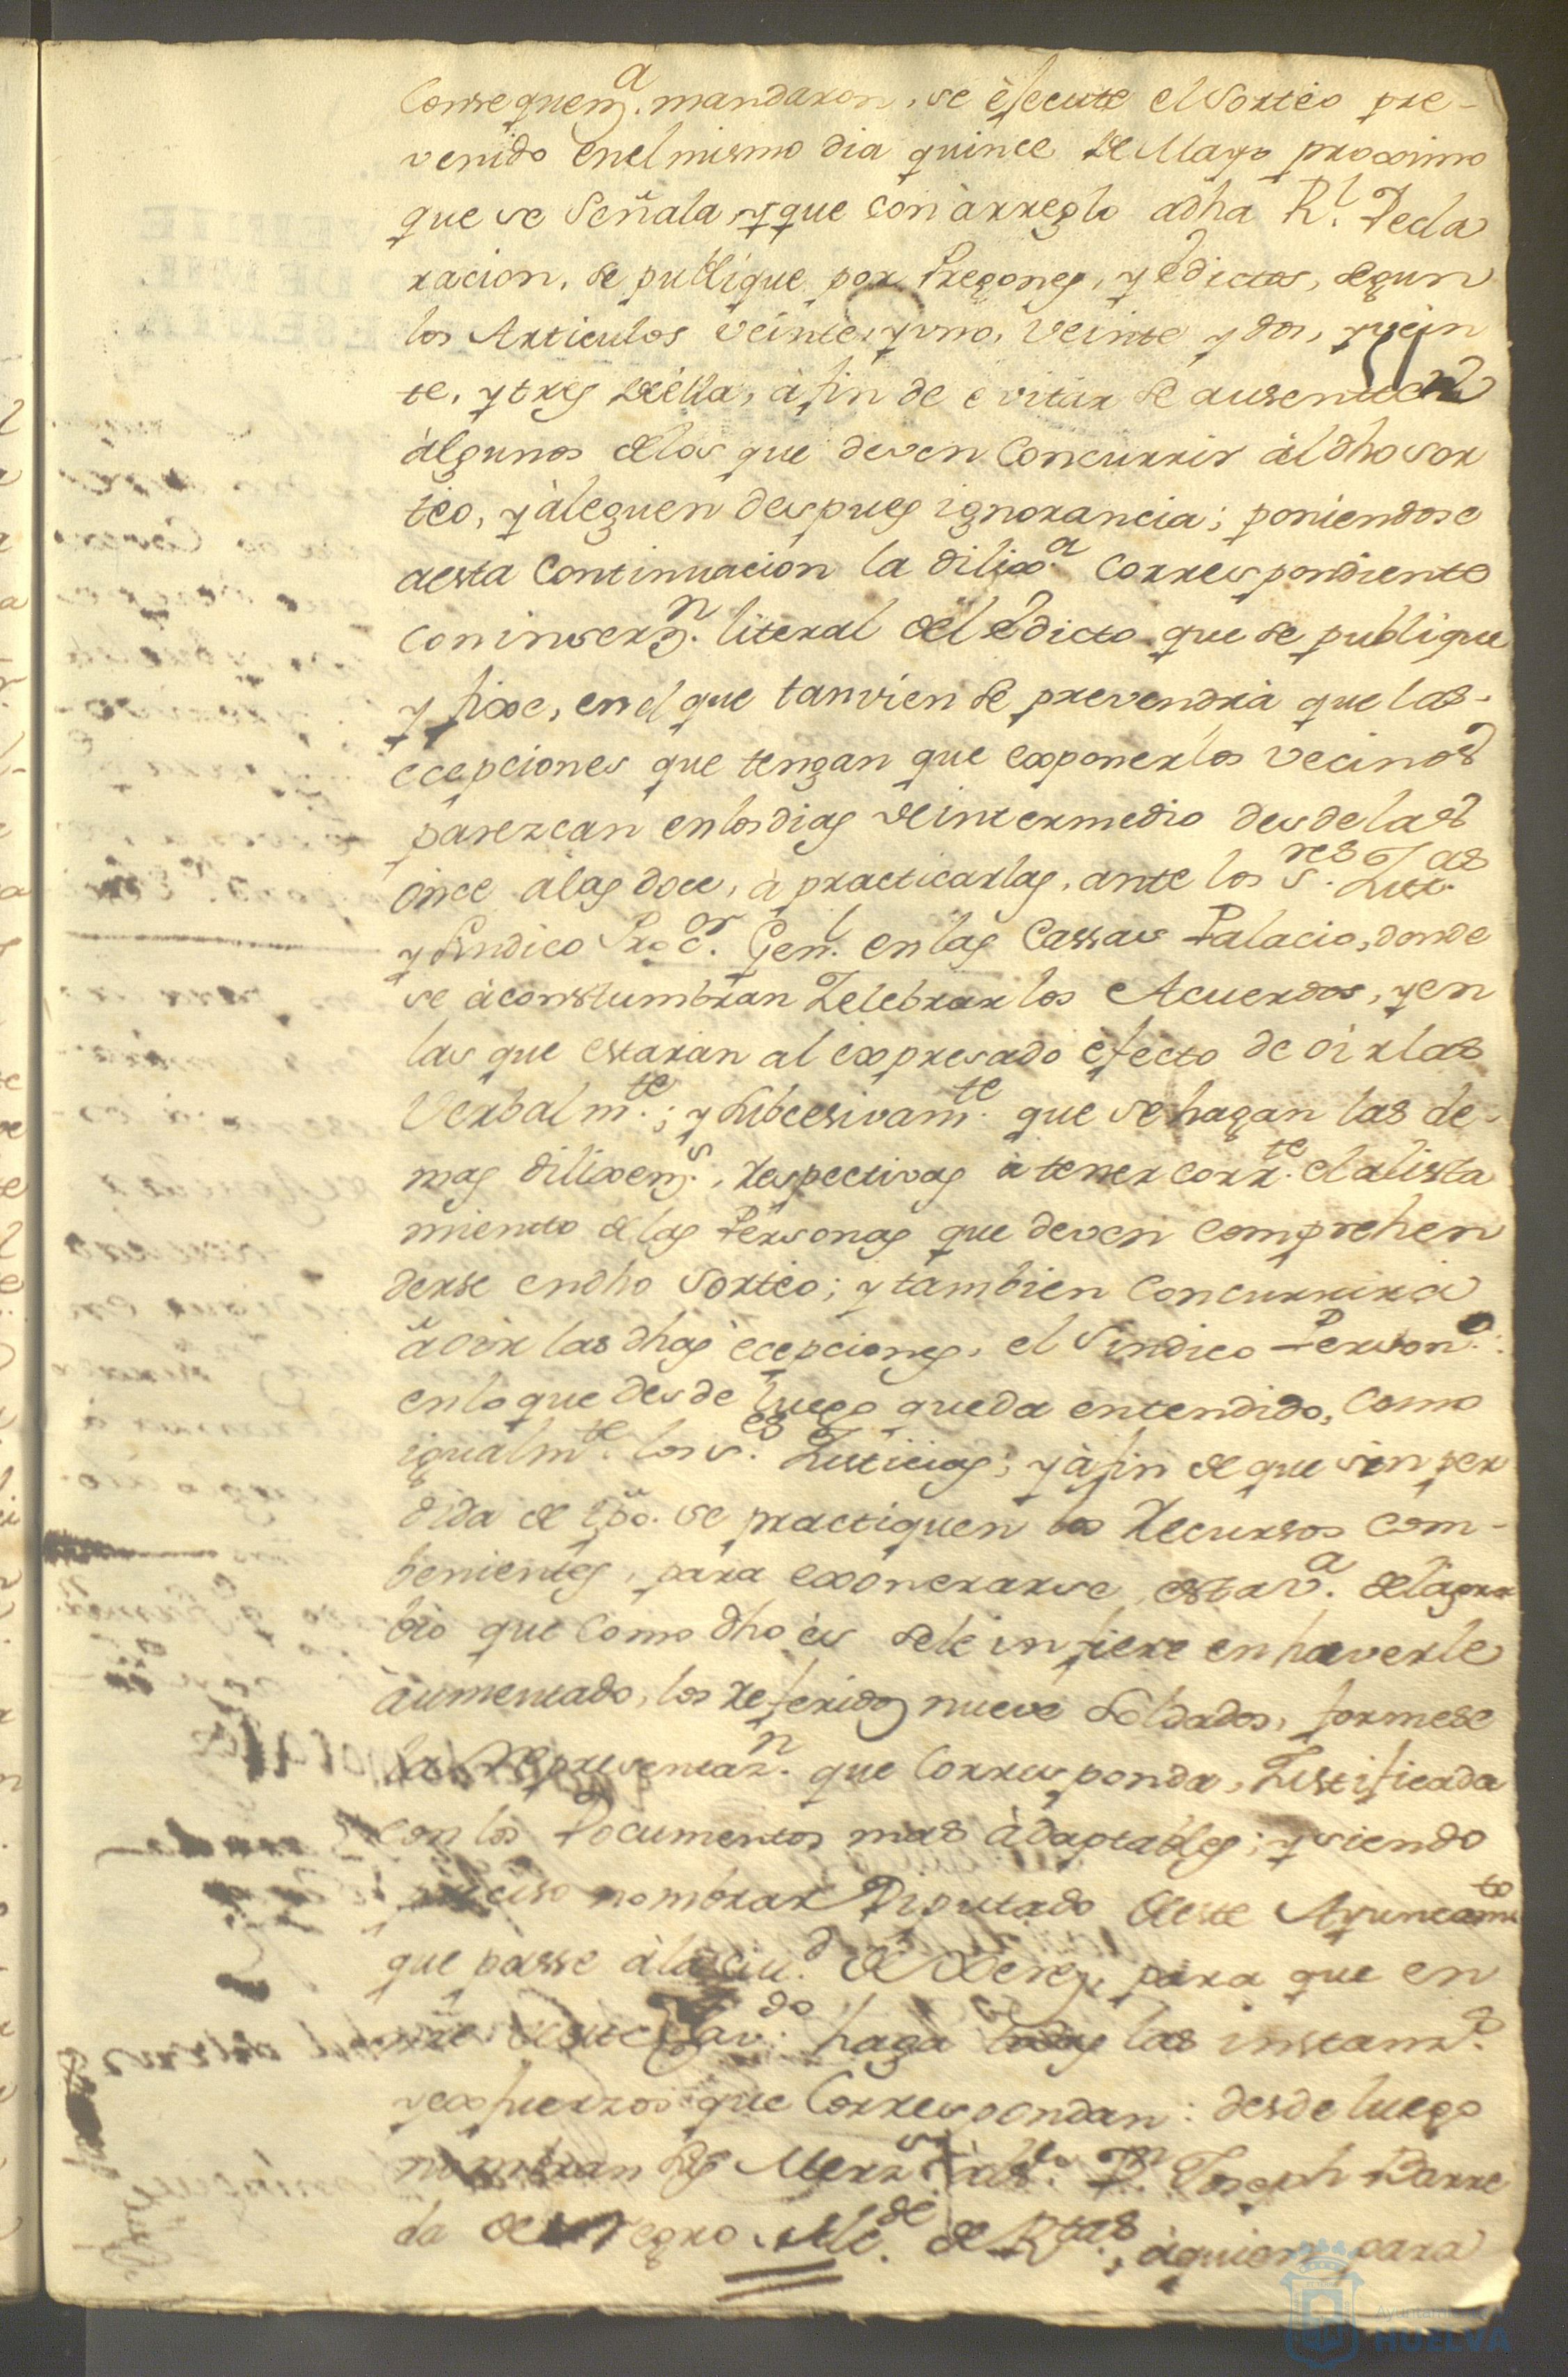 Consequenz.ª mandaron, se èjecute el sorteo pre-
venido en el mismo dia quince de Mayo proximo
que se Señala, y que con àrreglo adha R.l Decla
racion, se publique por Pregones, y èdictos, segun
los Articulos veinte, y uno, veinte y dos, y vein
te, y tres de èlla, à fin de evitar se ausenten
àlgunos de los que deven Concurrir àl dho sor
teo, y àleguen despues ignorancia; poniendose
aesta Continuacion la dilix.ª Correspondiente
con inserz.n literal del èdicto que se publique
y fixe, en el que tanvien se prevendrà que las-
ecepciones que tengan que exponer los vecinos
parezcan en los dias de intermedio desde las
once a las doce, à practicarlas, ante los S.res Just.as
y Sindico Proc.or Gen.l en las Cassas Palacio, donde
se àcostumbran Zelebrar los Acuerdos, y en
las que estaran al expresado èfecto de oirlas
Verbalm.te; y Subcesivam.te que se hagan las de-
mas dilixenz.s, respectivas à tener corr.te el alista
miento de las Personas que deven comprehen
derse en dho sorteo; y tambien Concurrirà
à oir las dhas ècepciones, el Sindico Person.o:
en lo que desde luego queda entendido, como
igualm.te los S.es Justicias; y à fin de que sin per
dida de tpo. se practiquen los Recursos com-
benientes, para exonerarse esta v.ª del agra
bio que como dho ès se le infiere en haverle
àumentado, los referidos nueve Soldados, formese
la Representaz.n que Corresponda, Justificada
con los Documentos mas àdaptables; y siendo
preciso nombrar Diputado de este Ayuntam.to
que passe à la ciu.d de Xerez, para que en
haga todas las instanz.s
y exfuerzos que Correspondan: desde luego
nombran sus Merz.s D.n Joseph Barre
da Negro Alc.de de R.tas, àquien para
Ayuntamiento
HUELVA